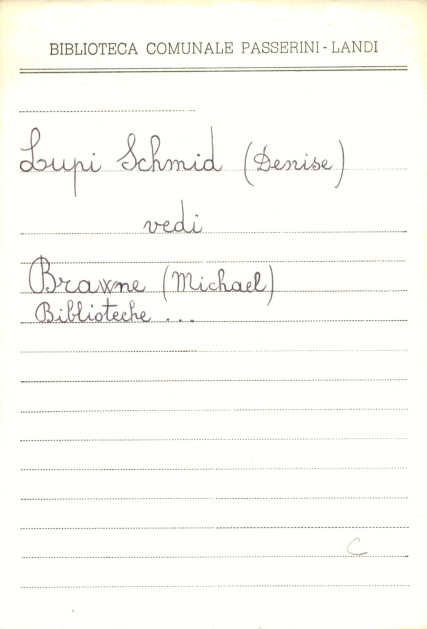 BIBLIOTECA COMUNALE PASSERINI - LANDI
Lupi Schmid (Denise)
vedi
Brawne (Michael)
Biblioteche ...
C